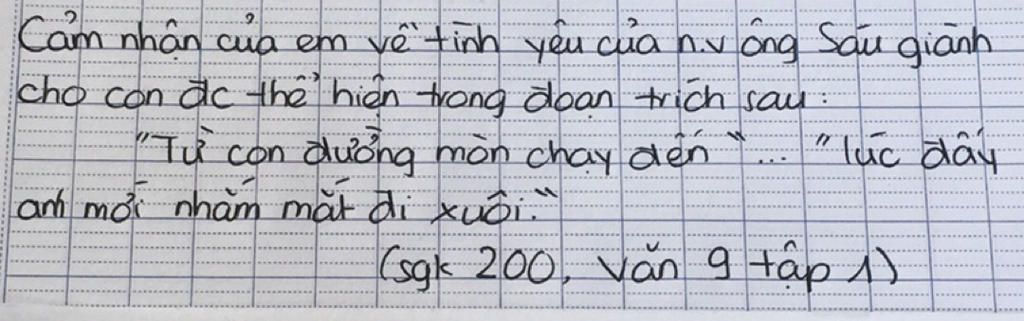 Cảm nhận của em về tình yêu của n.v ông Sáu giành
cho con đc thể hiện trong đoạn trích sau:
"Từ con đường mòn chạy đến"... "lúc đấy
anh mới nhắm mắt đi xuôi."
(sgk 200, Văn 9 tập 1)